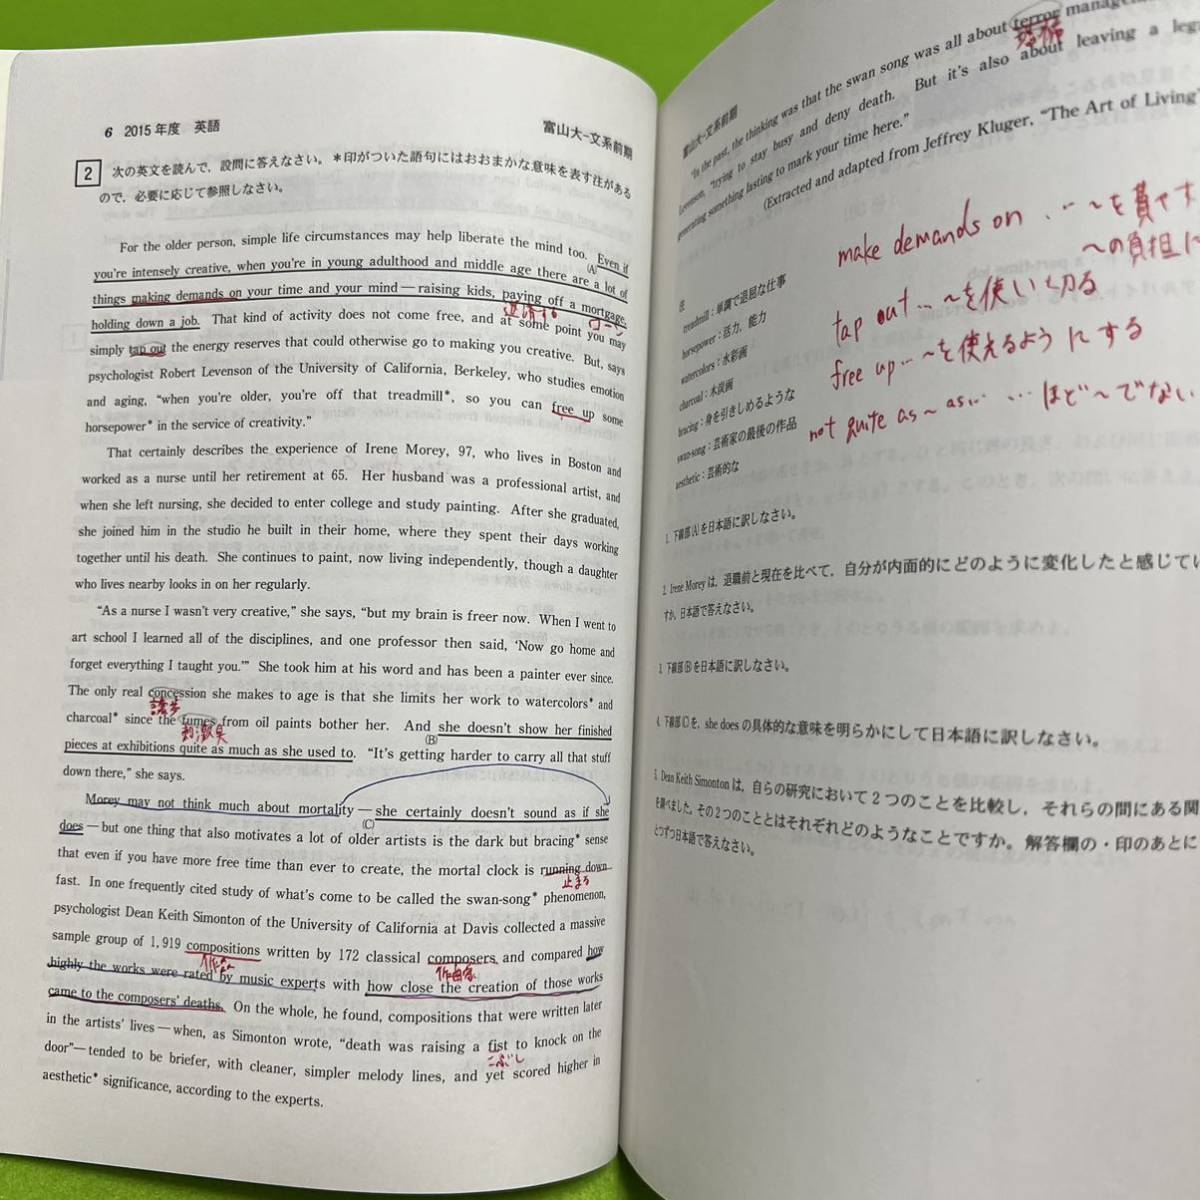 6 2015年度 英語
富山大-文系前期
2 次の英文を読んで、設問に答えなさい。＊印がついた語句にはおおまかな意味を表す注がある
ので、必要に応じて参照しなさい。
For the older person, simple life circumstances may help liberate the mind too. Even if
(A)
you're intensely creative, when you're in young adulthood and middle age there are a lot of
things making demands on your time and your mind—raising kids, paying off a mortgage,
返済する ローン
holding down a job. That kind of activity does not come free, and at some point you may
simply tap out the energy reserves that could otherwise go to making you creative. But, says
psychologist Robert Levenson of the University of California, Berkeley, who studies emotion
and aging, “when you're older, you're off that treadmill*, so you can free up some
horsepower* in the service of creativity.”
That certainly describes the experience of Irene Morey, 97, who lives in Boston and
worked as a nurse until her retirement at 65. Her husband was a professional artist, and
when she left nursing, she decided to enter college and study painting. After she graduated,
she joined him in the studio he built in their home, where they spent their days working
together until his death. She continues to paint, now living independently, though a daughter
who lives nearby looks in on her regularly.
“As a nurse I wasn't very creative,” she says, “but my brain is freer now. When I went to
art school I learned all of the disciplines, and one professor then said, ‘Now go home and
forget everything I taught you.’” She took him at his word and has been a painter ever since.
The only real concession she makes to age is that she limits her work to watercolors* and
譲歩
charcoal* since the fumes from oil paints bother her. And she doesn't show her finished
刺激臭
(B)
pieces at exhibitions quite as much as she used to. “It's getting harder to carry all that stuff
down there,” she says.
Morey may not think much about mortality—she certainly doesn't sound as if she
(C)
does—but one thing that also motivates a lot of older artists is the dark but bracing* sense
that even if you have more free time than ever to create, the mortal clock is running down
止まる
fast. In one frequently cited study of what's come to be called the swan-song* phenomenon,
psychologist Dean Keith Simonton of the University of California at Davis collected a massive
sample group of 1,919 compositions written by 172 classical composers and compared how
作曲家
highly the works were rated by music experts with how close the creation of those works
came to the composers' deaths. On the whole, he found, compositions that were written later
in the artists' lives—when, as Simonton wrote, “death was raising a fist to knock on the
こぶし
door”—tended to be briefer, with cleaner, simpler melody lines, and yet scored higher in
aesthetic* significance, according to the experts.
富山大-文系前期
“In the past, the thinking was that the swan song was all about terror
恐怖
Levenson, “trying to stay busy and deny death. But it's also about leaving a
generating something lasting to mark your time here.”
(Extracted and adapted from Jeffrey Kluger, “The Art of Living”
make demands on … ～を費やす
～の負担に
tap out … ～を使い切る
free up … ～を使えるようにする
not quite as ～ as … … ほど～でない
注
treadmill：単調で退屈な仕事
horsepower：活力、能力
watercolors：水彩画
charcoal：木炭画
bracing：身を引きしめるような
swan-song：芸術家の最後の作品
aesthetic：芸術的な
1. 下線部(A)を日本語に訳しなさい。
2. Irene Moreyは、退職前と現在を比べて、自分が内面的にどのように変化したと感じてい
すか、日本語で答えなさい。
3. 下線部(B)を日本語に訳しなさい。
4. 下線部(C)を、she doesの具体的な意味を明らかにして日本語に訳しなさい。
5. Dean Keith Simontonは、自らの研究において2つのことを比較し、それらの間にある関
を調べました。その2つのこととはそれぞれどのようなことですか。解答欄の・印のあとに
とつずつ日本語で答えなさい。